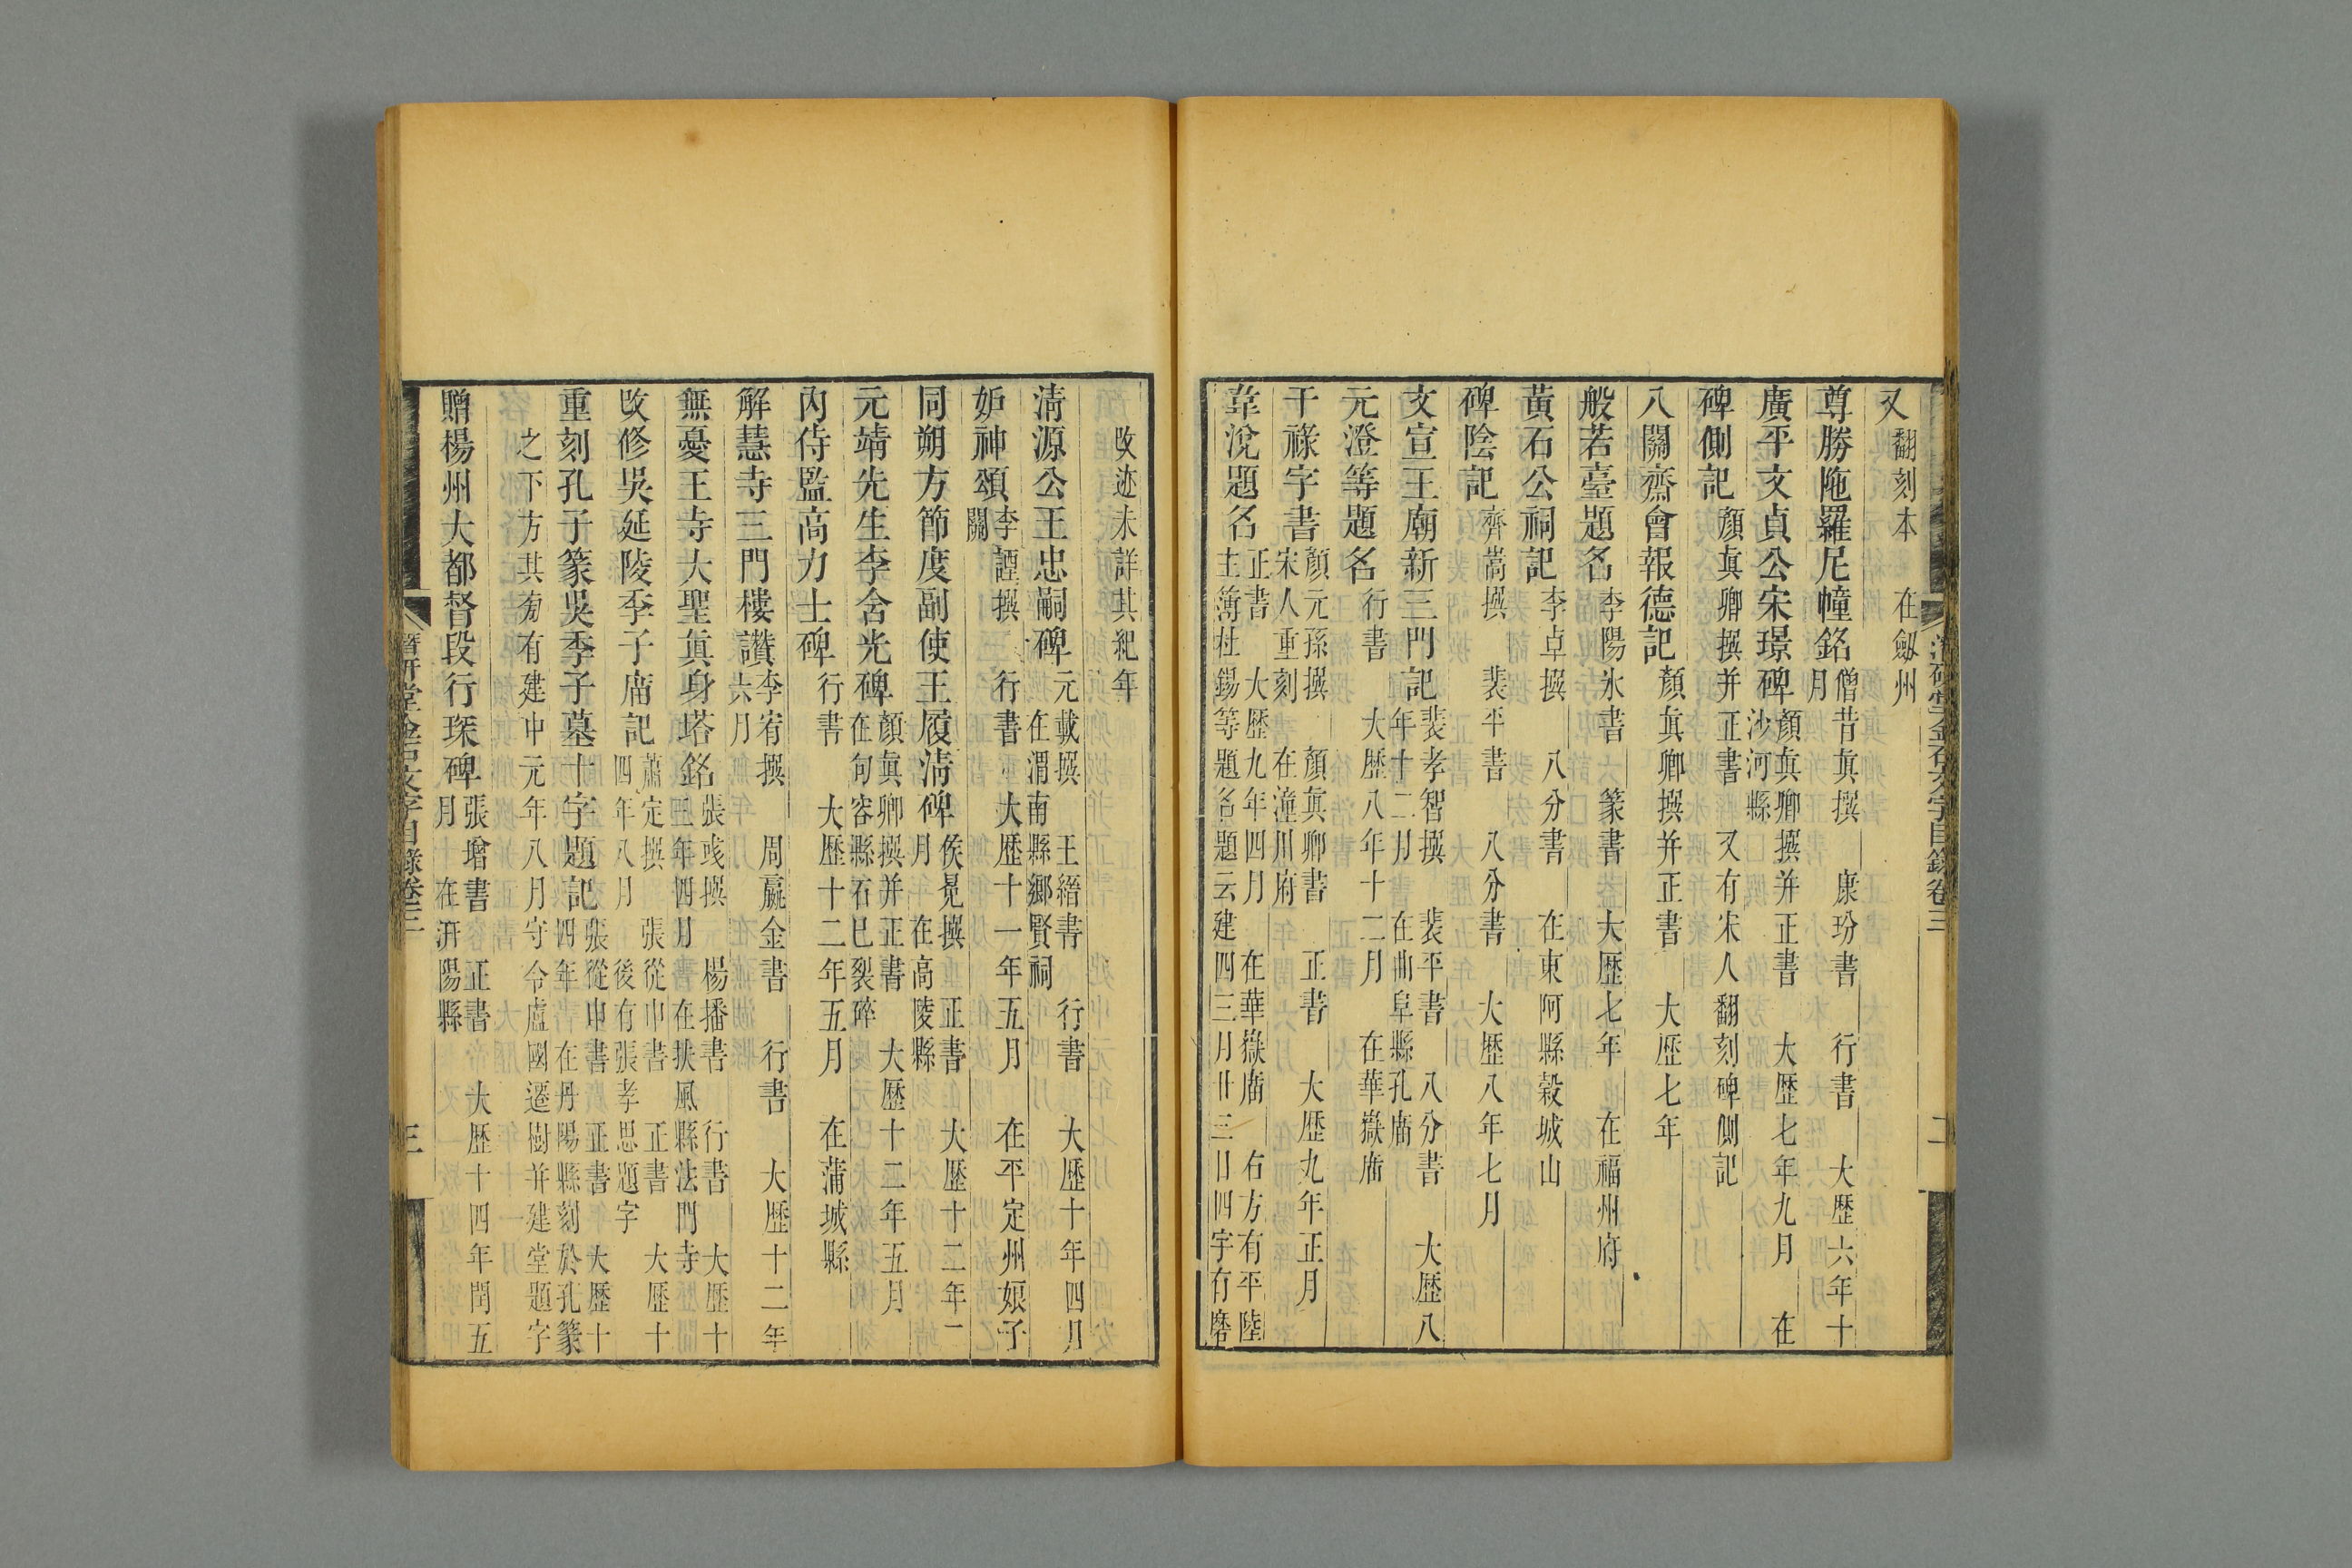 又翻刻本　在劔州
尊勝陁羅尼幢銘僧昔真撰　康玢書　行書　大歷六年十
月
廣平文貞公宋璟碑顏真卿撰并正書　大歷七年九月　在
沙河縣
碑側記顏真卿撰并正書　又有宋人翻刻碑側記
八關齋會報德記顏真卿撰并正書　大歷七年
般若臺題名李陽氷書　篆書　大歷七年　在福州府
黃石公祠記李卓撰　八分書　在東阿縣穀城山
碑陰記齊嵩撰　裴平書　八分書　大歷八年七月
文宣王廟新三門記裴孝智撰　裴平書　八分書　大歷八
年十二月　在曲阜縣孔廟
元澄等題名行書　大歷八年十二月　在華嶽廟
干祿字書顏元孫撰　顏真卿書　正書　大歷九年正月
宋人重刻　在潼川府
韋浼題名正書　大歷九年四月　在華嶽廟　右方有平陸
主簿杜錫等題名題云建四三月廿三日四字有磨
潛研堂金石文字目錄卷三　二
改迹未詳其紀年
清源公王忠嗣碑元載撰　王縉書　行書　大歷十年四月
在渭南縣鄉賢祠
妒神頌李諲撰　行書　大歷十一年五月　在平定州娘子
關
同朔方節度副使王履清碑侯冕撰　正書　大歷十二年二
月　在高陵縣
元靖先生李含光碑顏真卿撰并正書　大歷十二年五月
在句容縣石已裂碎
內侍監高力士碑行書　大歷十二年五月　在蒲城縣
解慧寺三門樓讚李宥撰　周嬴金書　行書　大歷十二年
六月
無憂王寺大聖真身塔銘張彧撰　楊播書　行書　大歷十
三年四月　在扶風縣法門寺
改修吳延陵季子廟記蕭定撰　張從申書　正書　大歷十
四年八月　後有張孝思題字
重刻孔子篆吳季子墓十字題記張從申書　正書　大歷十
四年　在丹陽縣刻於孔篆
之下方其旁有建中元年八月守令盧國遷樹并建堂題字
贈楊州大都督段行琛碑張增書　正書　大歷十四年閏五
月　在汧陽縣
潛研堂金石文字目錄卷三　三